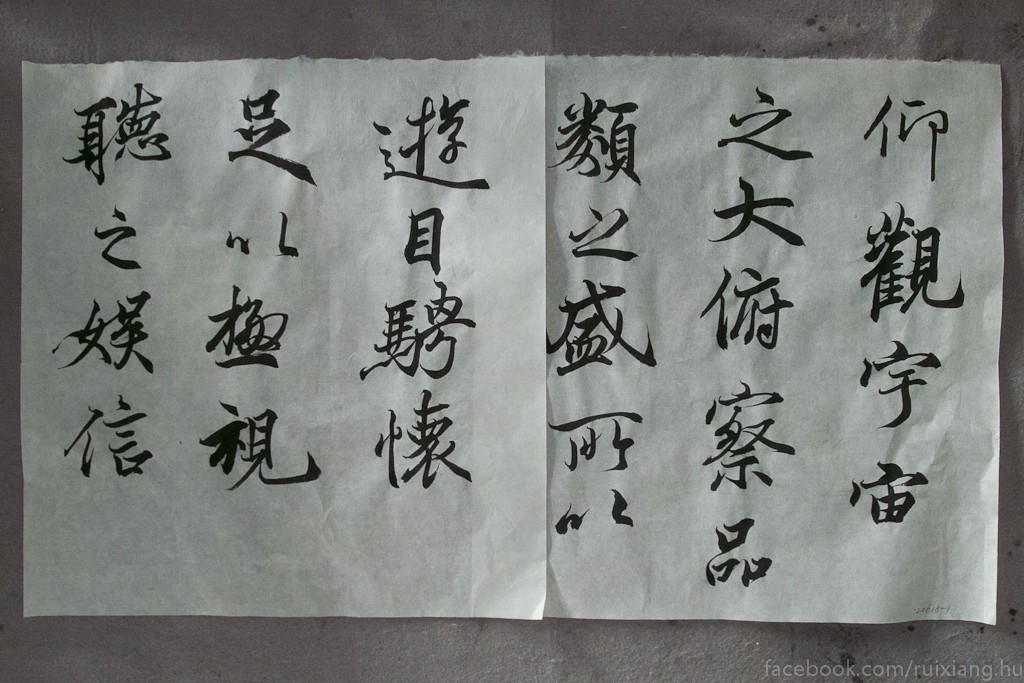 仰觀宇宙
之大俯察品
類之盛所以
遊目騁懷
足以極視
聽之娛信
facebook.com/ruixiang.hu